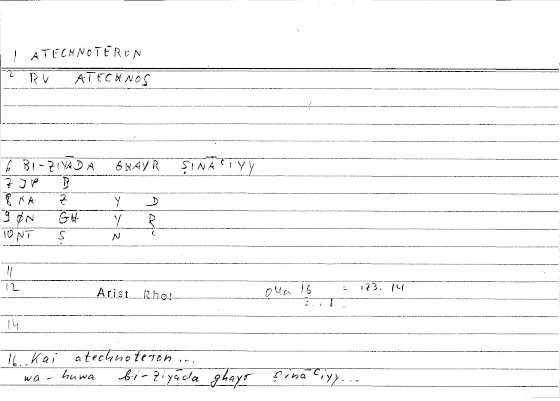 1 ATECHNOTERON
2 RV ATECHNOS
6 BI-ZIYĀDA GHAYR ṢINĀʿIYY
7 JP B
8 KA Z Y D
9 ØN GH Y R
10 NT Ṣ N ʿ
11
12 Arist Rhet 04a 16 = 123. 14
14
16.. Kai atechnoteron...
wa-huwa bi-ziyāda ghayr ṣināʿiyy...